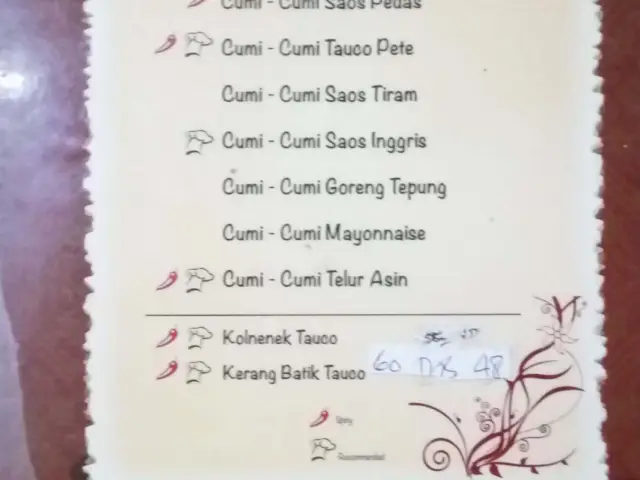 Cumi - Cumi Saos Pedas
Cumi - Cumi Tauco Pete
Cumi - Cumi Saos Tiram
Cumi - Cumi Saos Inggris
Cumi - Cumi Goreng Tepung
Cumi - Cumi Mayonnaise
Cumi - Cumi Telur Asin
Kolnenek Tauco
Kerang Batik Tauco 60 48
Spicy
Recommended